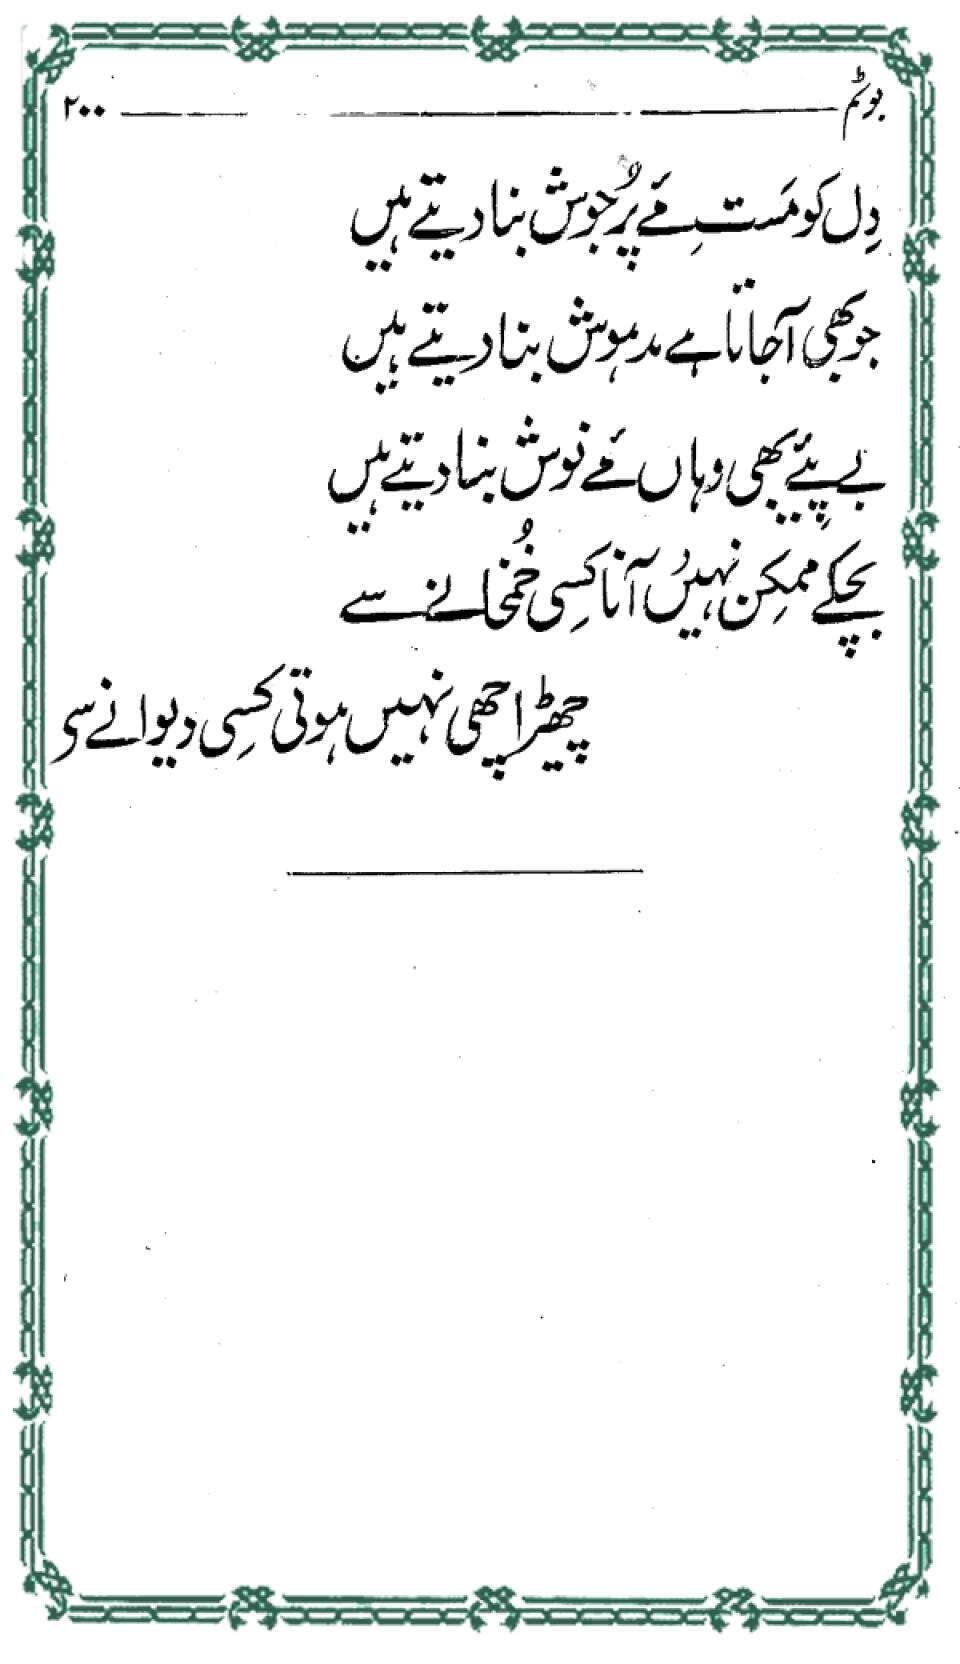 بوٹم ۲۰۰
دِل کو مَستِ مئے پُر جوش بنا دیتے ہیں
جو بھی آجاتا ہے مدہوش بنا دیتے ہیں
بے پِئے بھی وہاں مئے نوش بنا دیتے ہیں
بچکے ممکِن نہیں آنا کسِی خُمخانے سے
چھیڑ اچھی نہیں ہوتی کسِی دیوانے سے